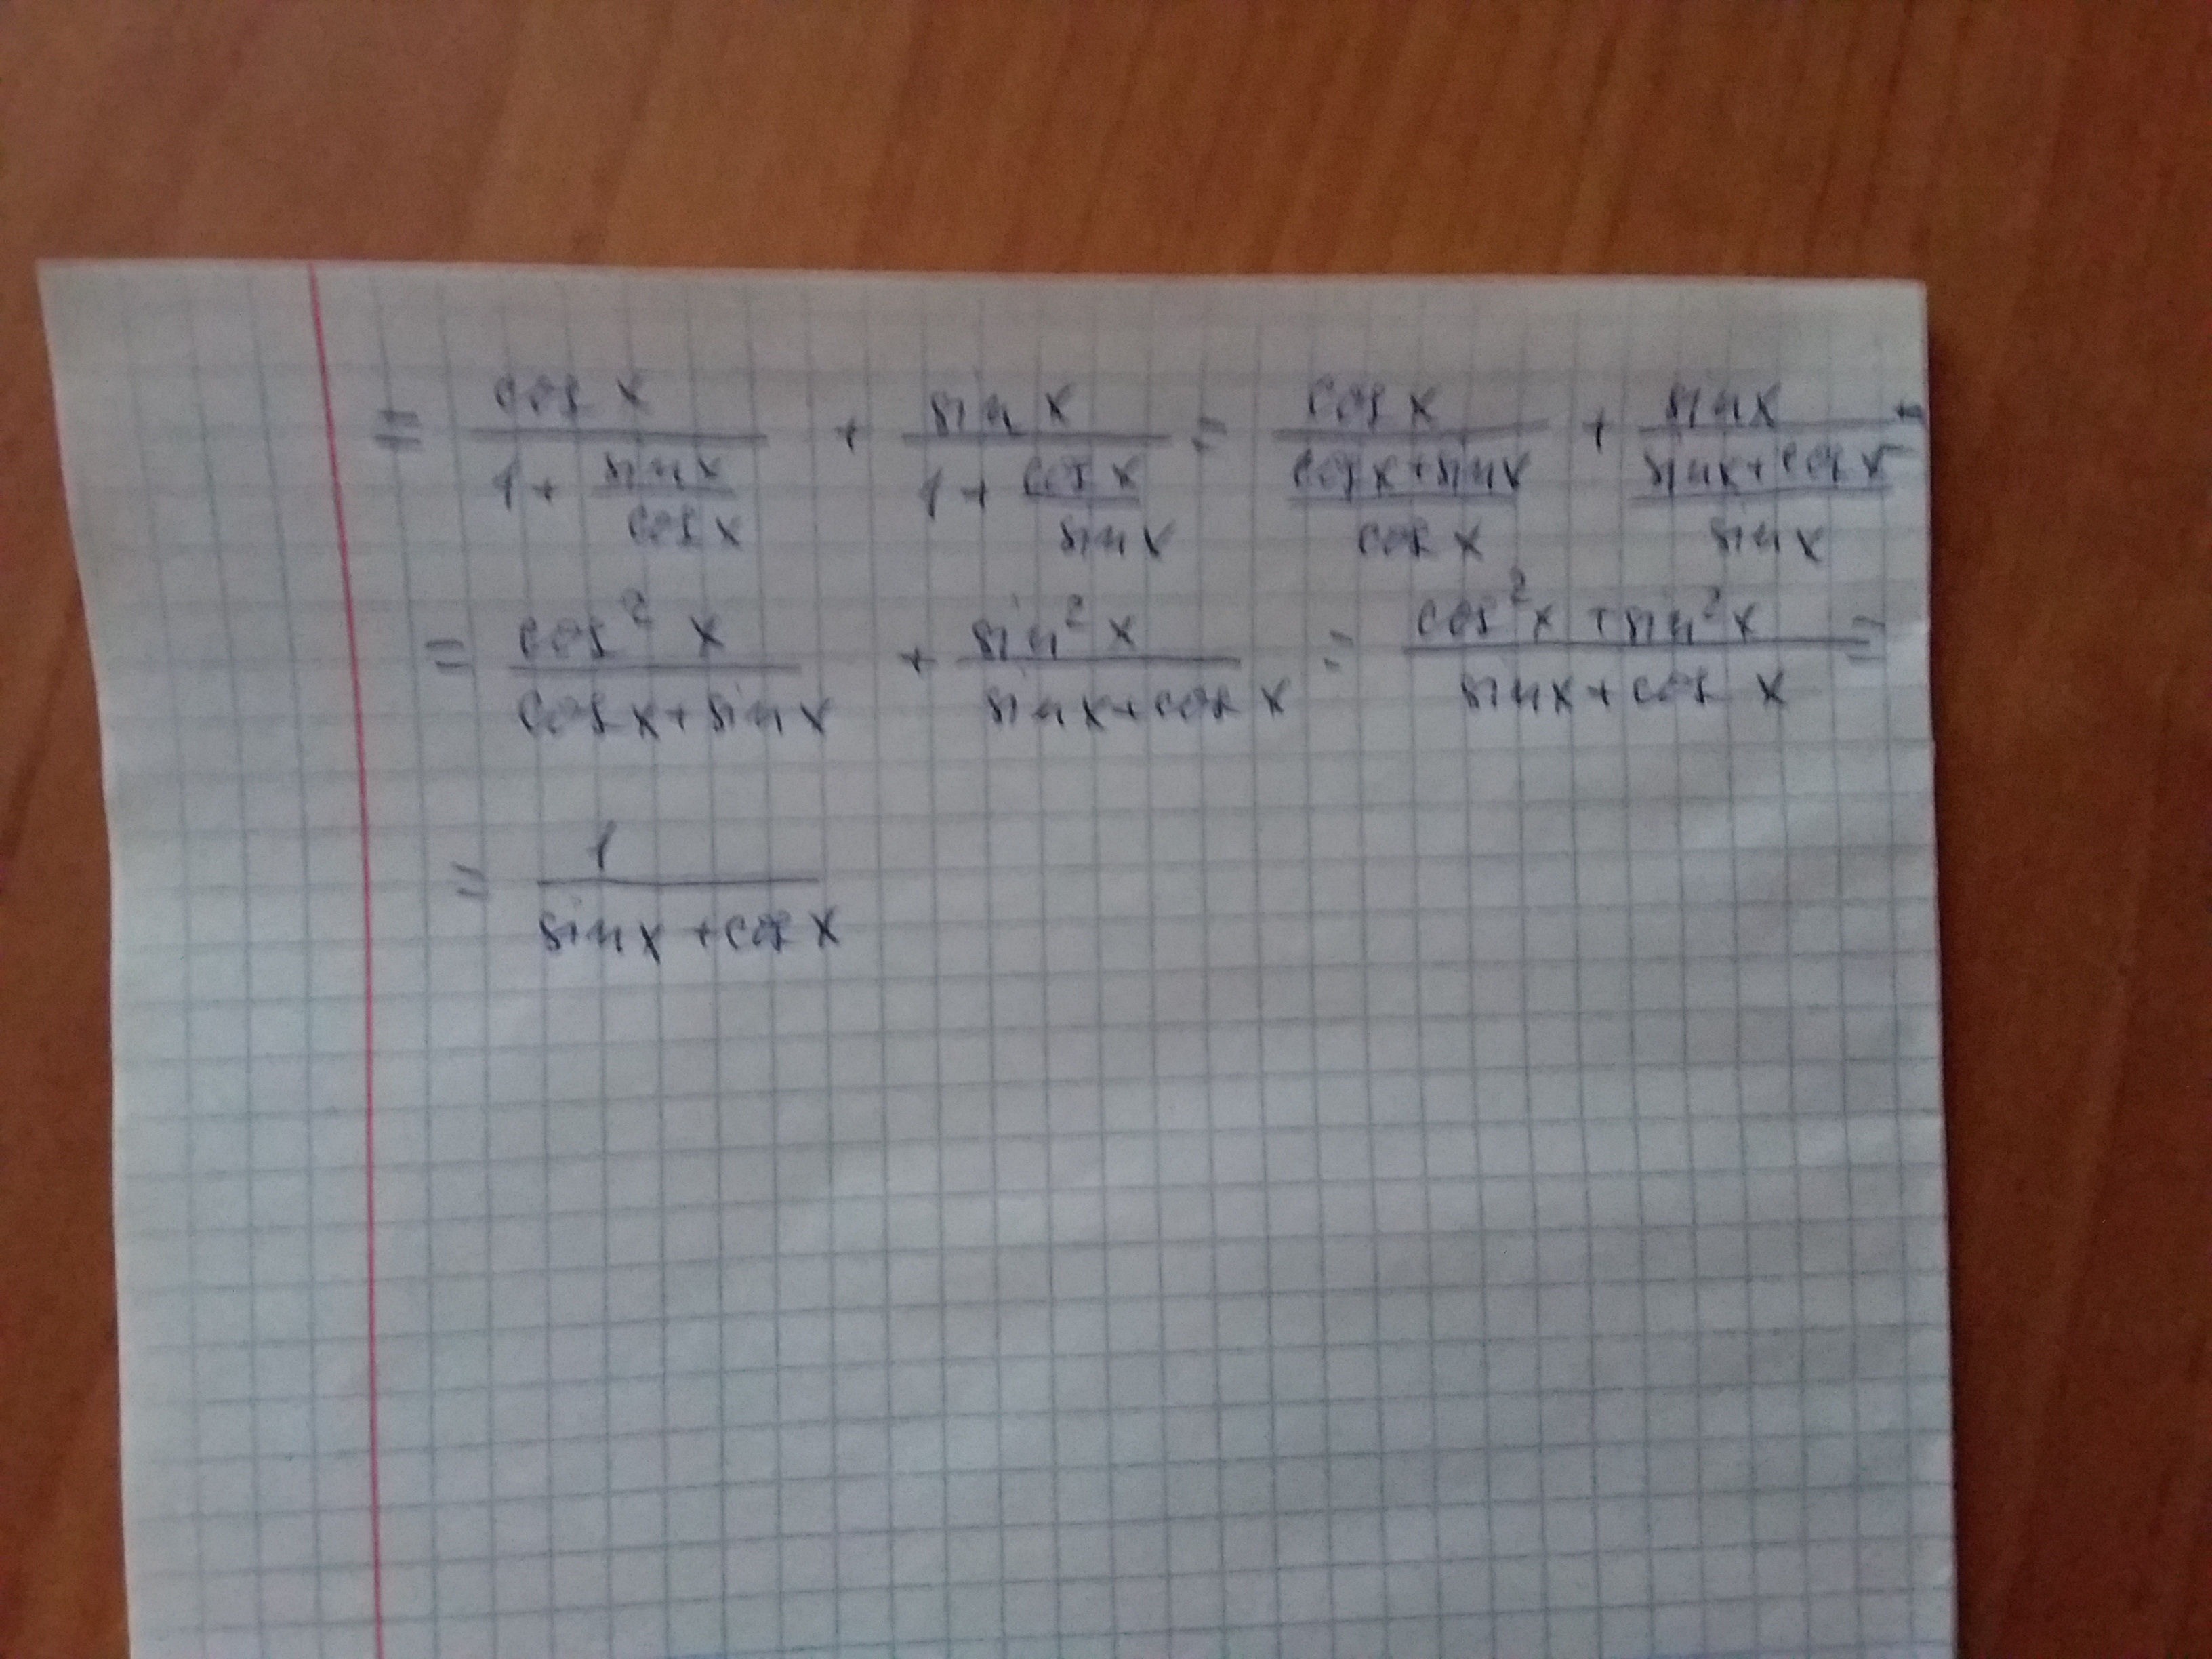 = cos x / (1 + sin x / cos x) + sin x / (1 + cos x / sin x) = cos x / ((cos x + sin x) / cos x) + sin x / ((sin x + cos x) / sin x) =
= cos² x / (cos x + sin x) + sin² x / (sin x + cos x) = (cos² x + sin² x) / (sin x + cos x) =
= 1 / (sin x + cos x)